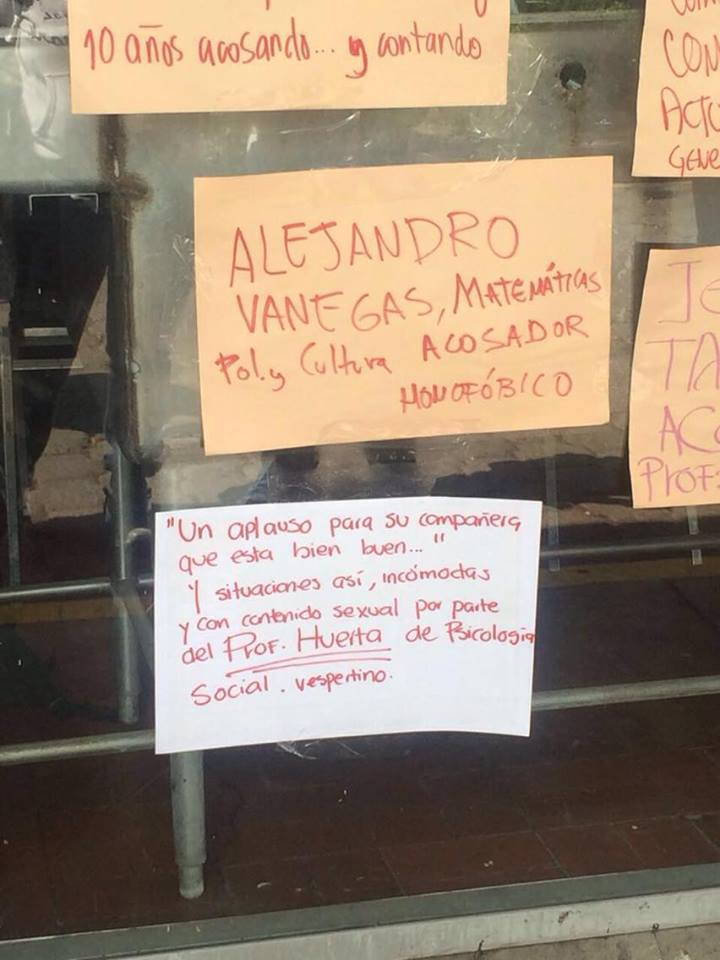 10 años acosando... y contando
ALEJANDRO
VANEGAS, MATEMÁTICAS
Pol. y Cultura ACOSADOR
HOMOFÓBICO
"Un aplauso para su compañera
que esta bien buen..."
Y situaciones así, incómodas
y con contenido sexual por parte
del Prof. Huerta de Psicología
Social. vespertino.
CON
ACTO
GENE
JE
TA
ACO
PROF.